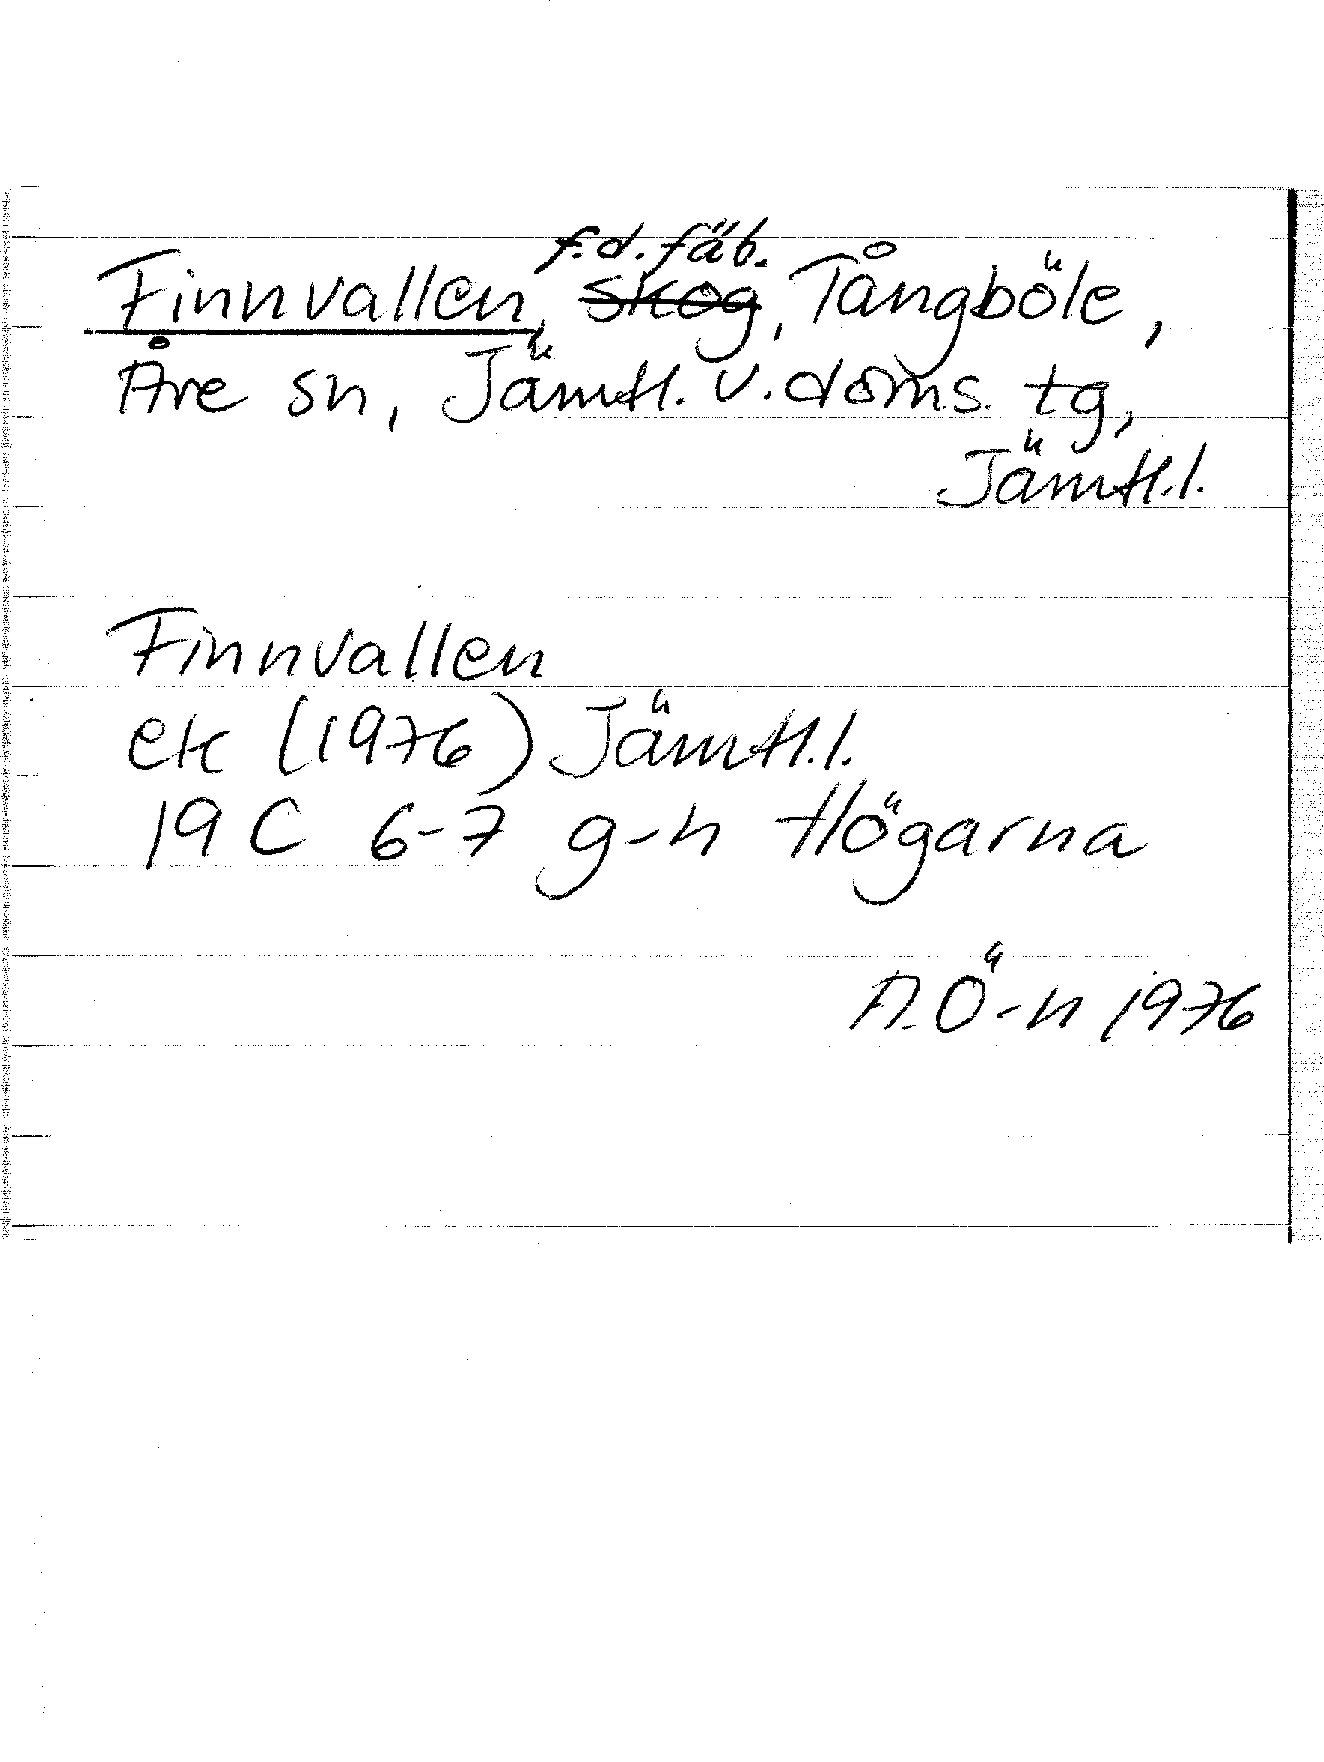 f.d. fäb.
Finnvallen, skog, Tångböle,
Åre sn, Jämtl. v. doms. tg,
Jämtl.l.
Finnvallen
ek (1976) Jämtl.l.
19 C 6-7 g-h Högarna
A.Ö-n 1976